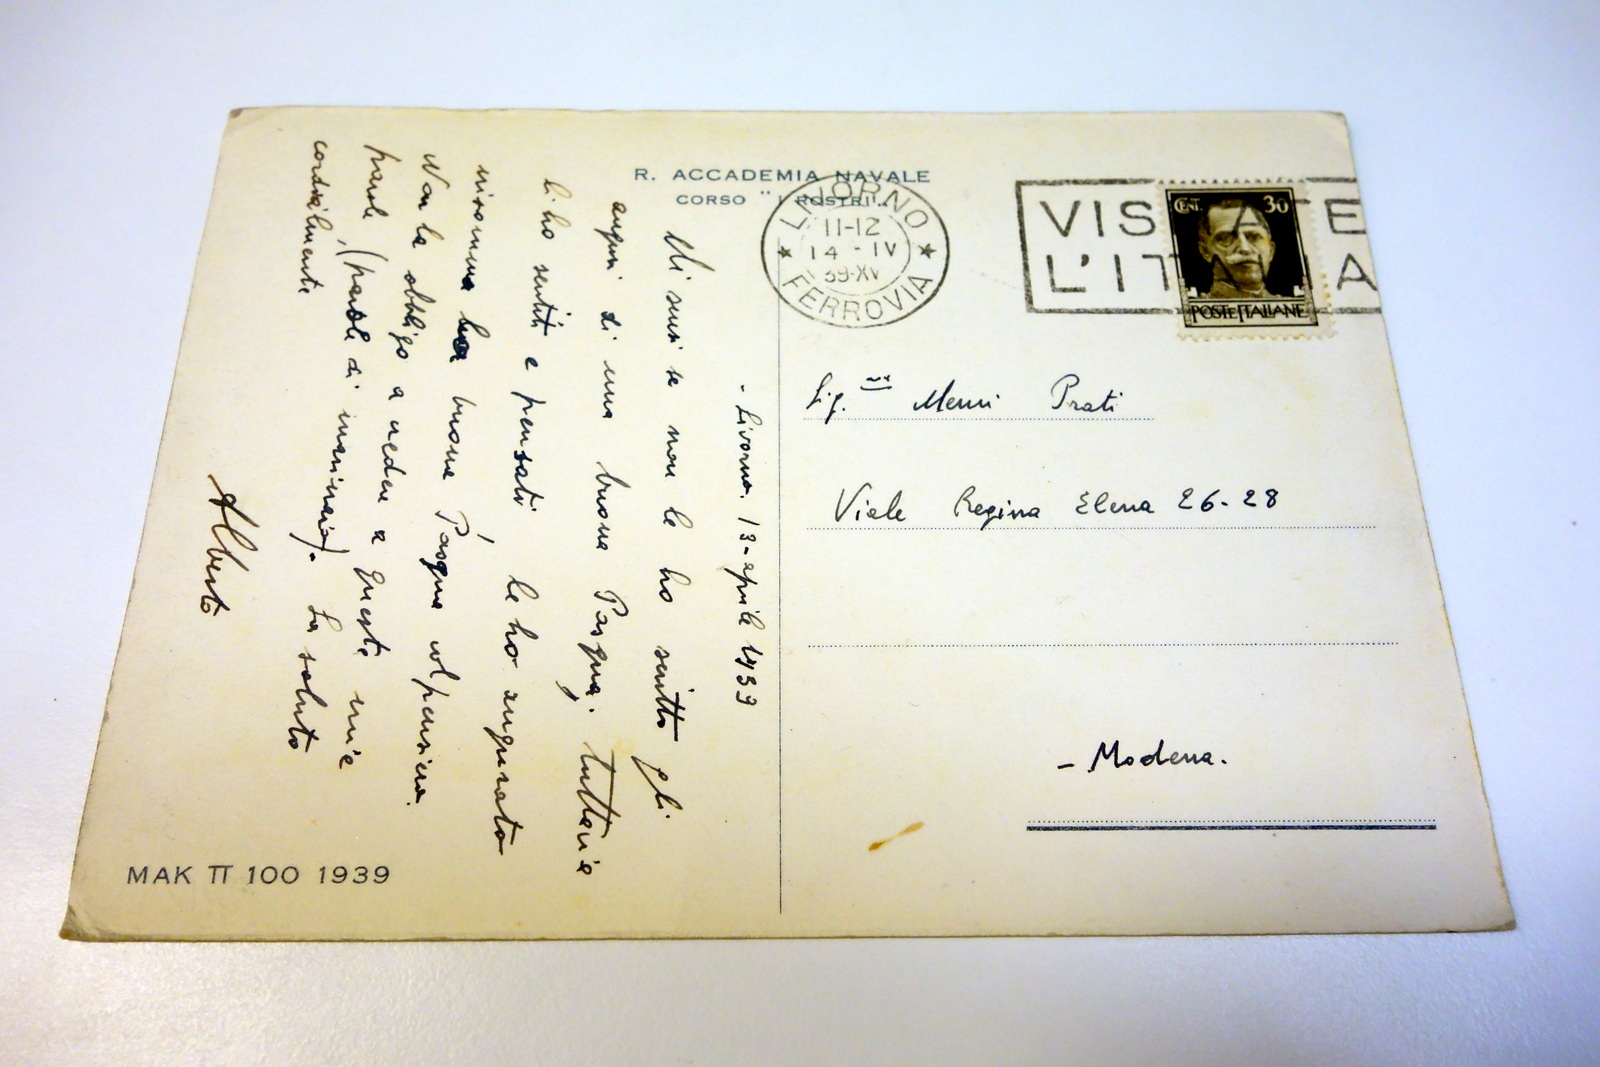 R. ACCADEMIA NAVALE
CORSO " I ROSTRI "
LIVORNO
11-12
14 - IV
39-XV
FERROVIA
VISITATE
L'ITALIA
CENT. 30
POSTE ITALIANE
- Livorno. 13 - aprile 1939
Mi scusi se non le ho scritto gli
auguri di una buona Pasqua, tuttavia
li ho sentiti e pensati, le ho augurato
buona Pasqua col pensiero.
Non la obbligo a credere a queste mie
parole, (parole di marinaio). La saluto
cordialmente
Alberto
Sig.na Memi Prati
Viale Regina Elena 26-28
- Modena.
MAK π 100 1939